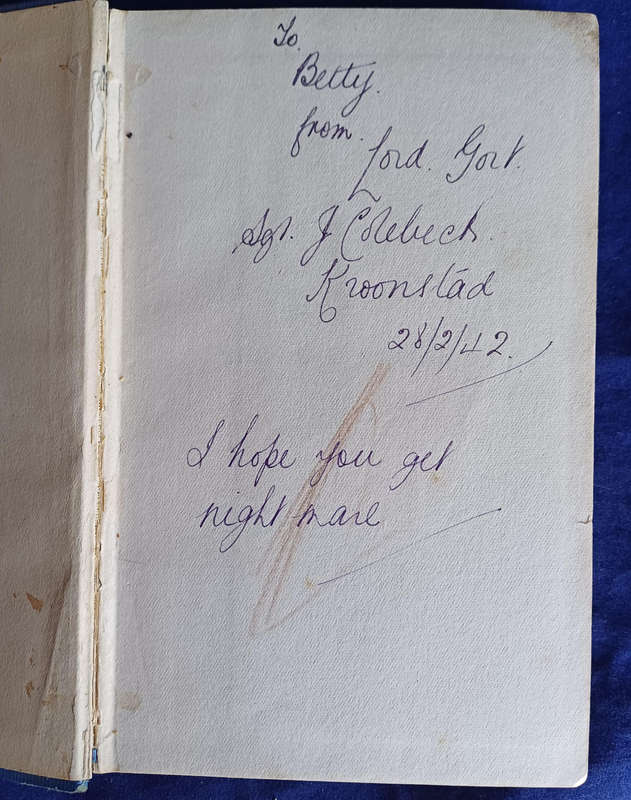 To.
Betty.
from.
Lord. Gort.
Sgt. J Colebeck.
Kroonstad
28/2/42.
I hope you get
night mare